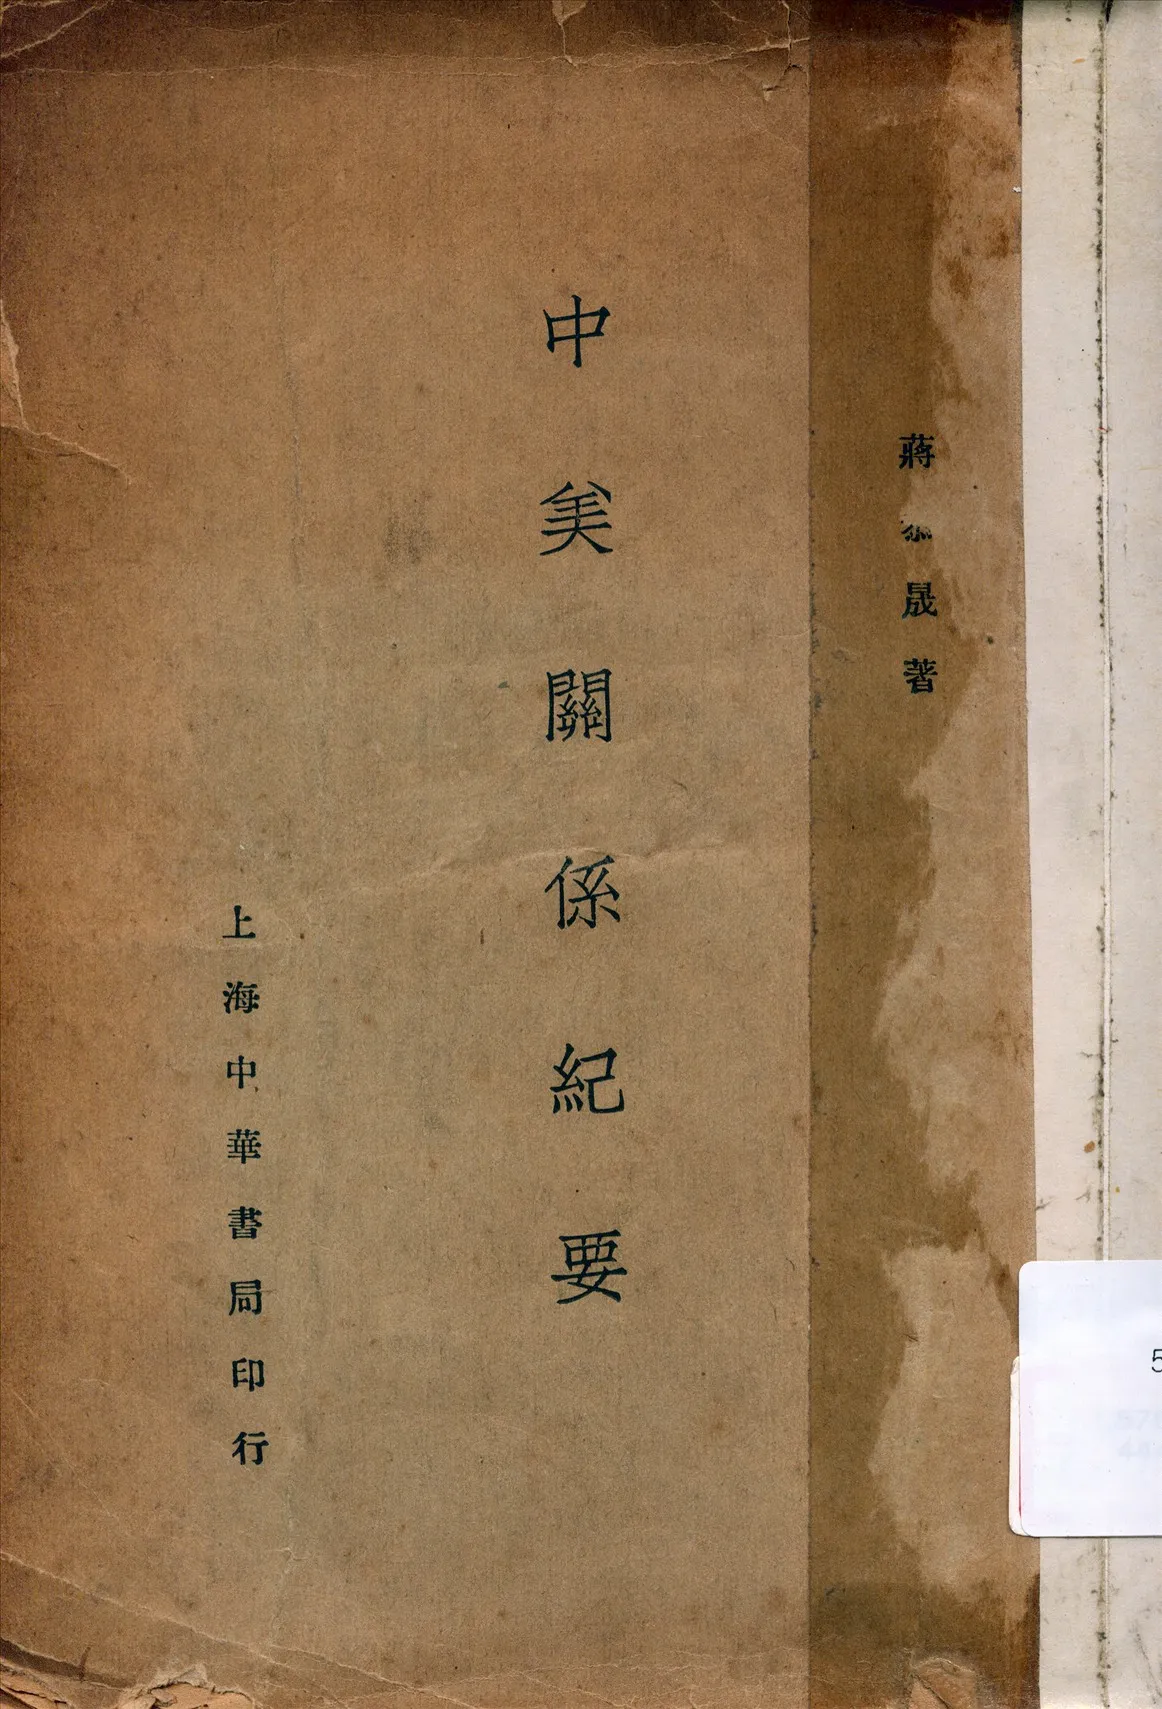 蔣恭晟著
中美關係紀要
上海中華書局印行
5